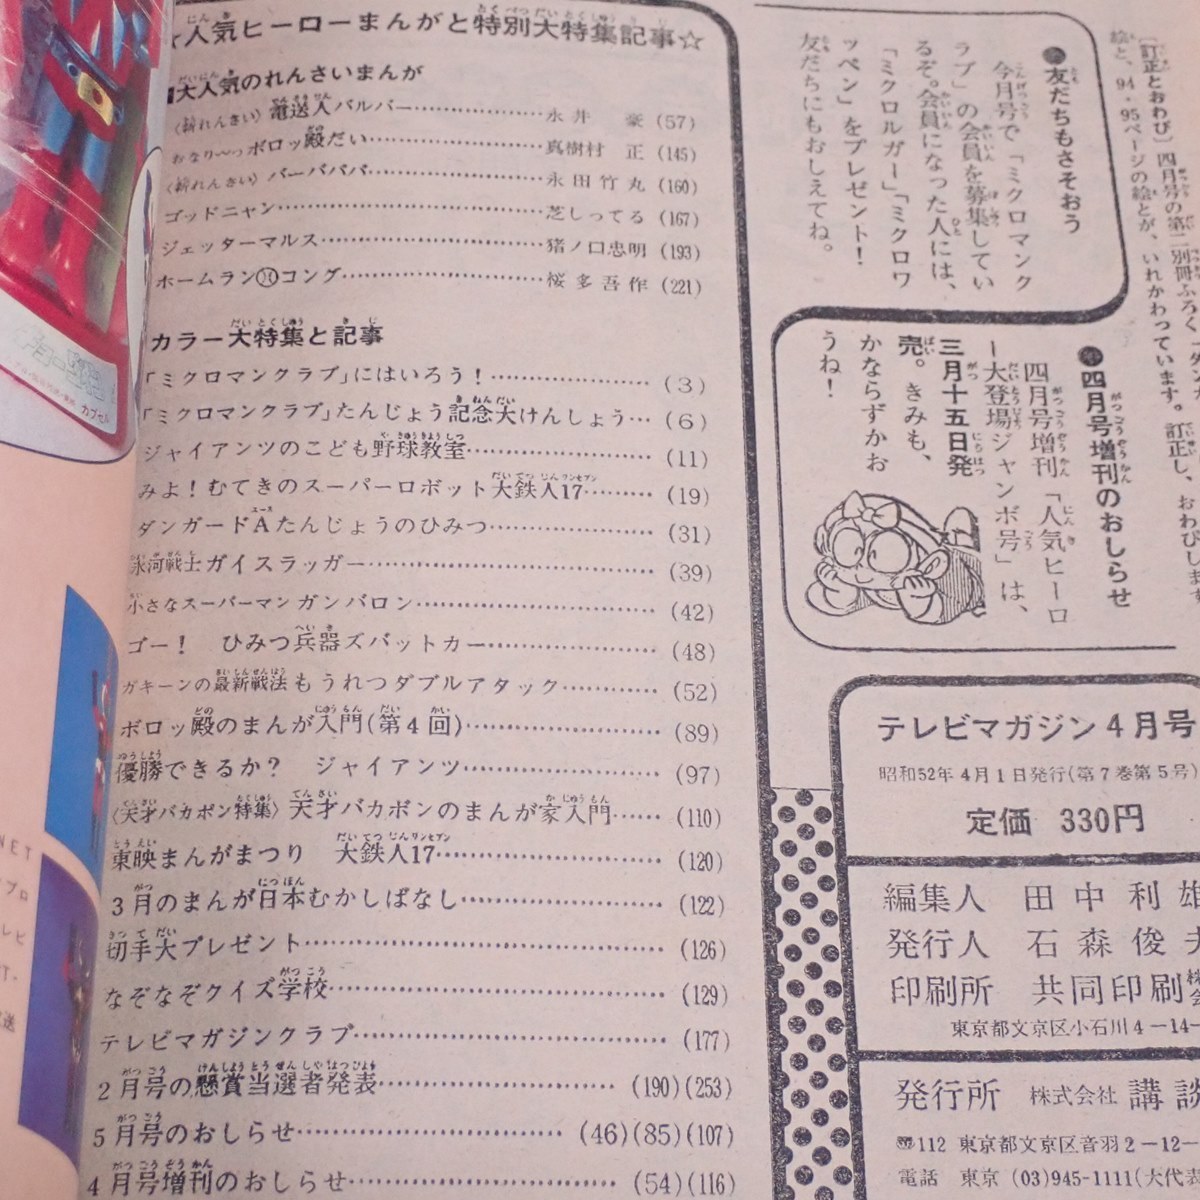 ☆人気ヒーローまんがと特別大特集記事☆
■大人気のれんさいまんが
〈新れんさい〉電送人バルバー……永井 豪(57)
おなり〜っボロッ殿だい……真樹村 正(145)
〈新れんさい〉バーバパパ……永田竹丸(160)
ゴッドニャン……芝しってる(167)
ジェッターマルス……猪ノ口忠明(193)
ホームランコング……桜多吾作(221)
カラー大特集と記事
「ミクロマンクラブ」にはいろう!……(3)
「ミクロマンクラブ」たんじょう記念大けんしょう…(6)
ジャイアンツのこども野球教室……(11)
みよ!むてきのスーパーロボット大鉄人17……(19)
ダンガードAたんじょうのひみつ……(31)
氷河戦士ガイスラッガー……(39)
小さなスーパーマンガンバロン……(42)
ゴー! ひみつ兵器ズバットカー……(48)
ガキーンの最新戦法もうれつダブルアタック……(52)
ボロッ殿のまんが入門(第4回)……(89)
優勝できるか? ジャイアンツ……(97)
〈天才バカボン特集〉天才バカボンのまんが家入門……(110)
東映まんがまつり 大鉄人17……(120)
3月のまんが日本むかしばなし……(122)
切手大プレゼント……(126)
なぞなぞクイズ学校……(129)
テレビマガジンクラブ……(177)
2月号の懸賞当選者発表……(190)(253)
5月号のおしらせ……(46)(85)(107)
4月号増刊のおしらせ……(54)(116)
〔訂正とおわび〕四月号の第二別冊ふろく「ダン
絵と、94・95ページの絵とが、いれかわっています。訂正し、おわびします
友だちもさそおう
今月号で「ミクロマンク
ラブ」の会員を募集してい
るぞ。会員になった人には、
「ミクロルガー」「ミクロワ
ッペン」をプレゼント!
友だちにもおしえてね。
四月号増刊のおしらせ
四月号増刊「人気ヒーロ
ー大登場ジャンボ号」は、
三月十五日発
売。きみも、
かならずかお
うね!
テレビマガジン4月号
昭和52年4月1日発行(第7巻第5号)
定価 330円
編集人 田中利雄
発行人 石森俊夫
印刷所 共同印刷
東京都文京区小石川4-14-
発行所 株式会社 講談
〠112 東京都文京区音羽2-12-
電話 東京(03)945-1111(大代表
カプセル
NET
プロ
レビ
T.
送